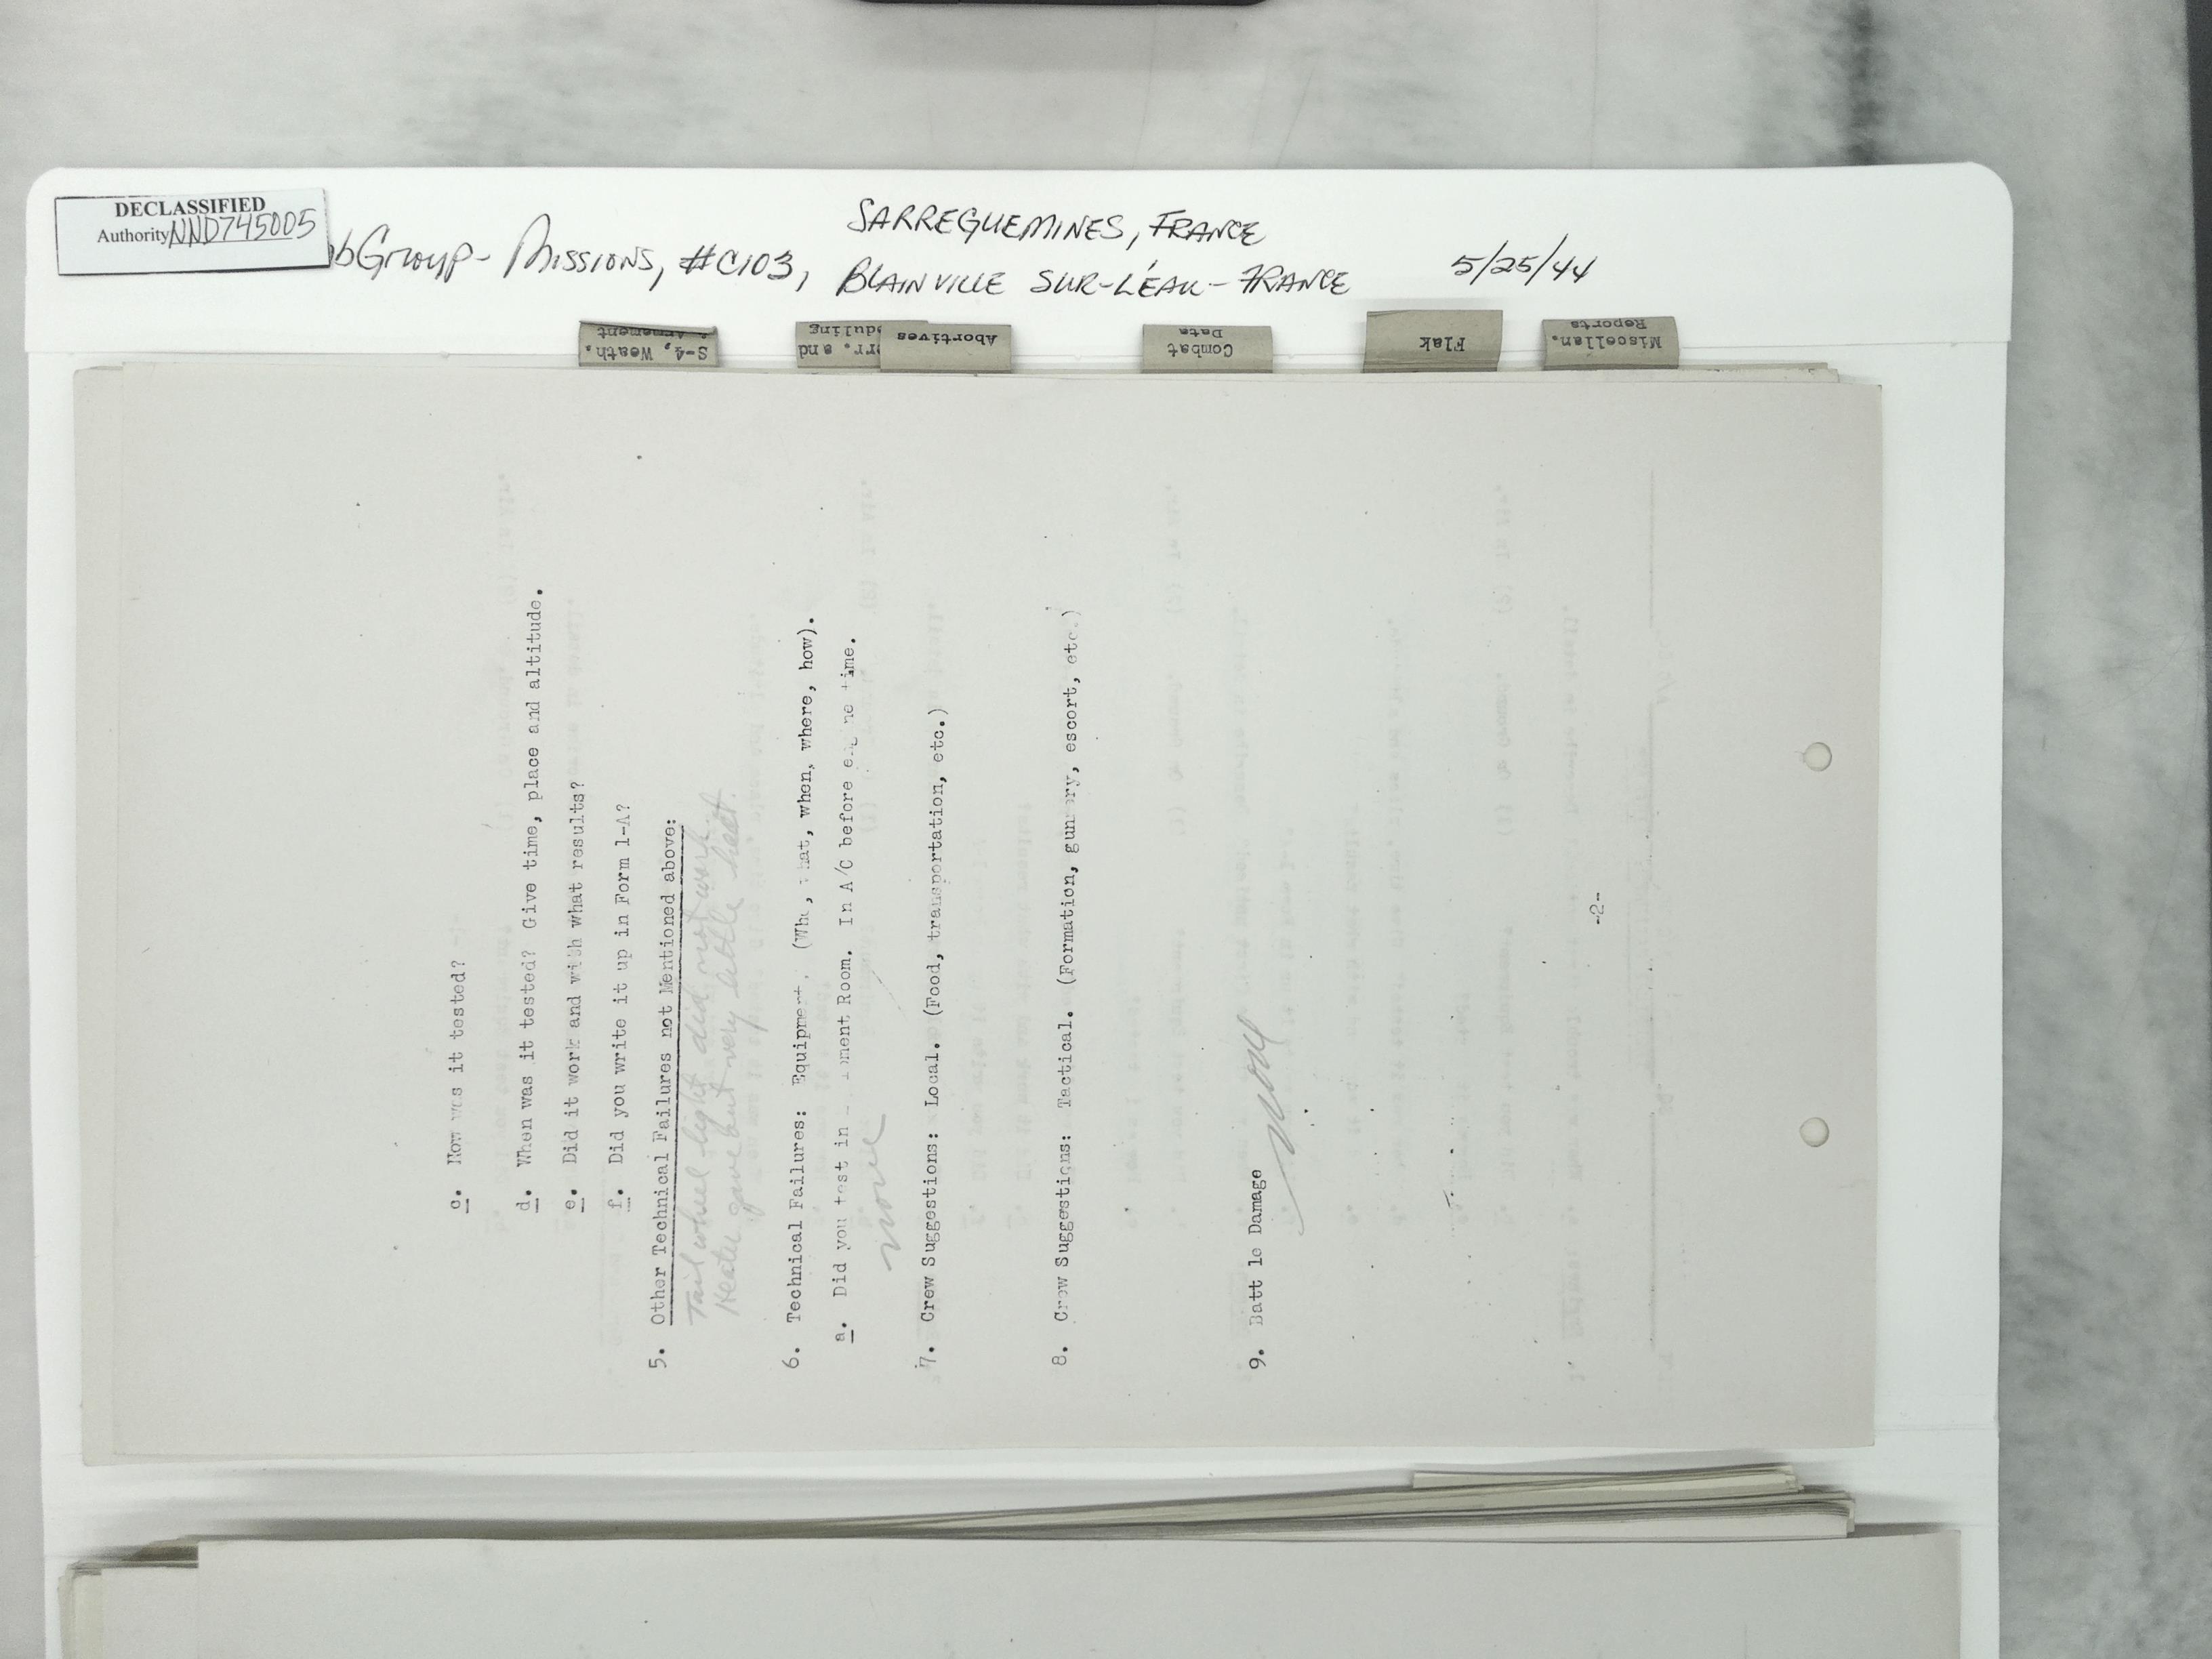 DECLASSIFIED
Authority NND745005
bGroup - Missions, #C103,
SARREGUEMINES, FRANCE
BLAINVILLE SUR-L'EAU - FRANCE
5/25/44
S-4, Weath.
& Armement
rr. and
duling
Abortives
Combat
Data
Flak
Miscellan.
Reports
c. How was it tested?
d. When was it tested? Give time, place and altitude.
e. Did it work and with what results?
f. Did you write it up in Form 1-A?
5. Other Technical Failures not Mentioned above:
Tail wheel light did not work.
Heater gave out very little heat.
6. Technical Failures: Equipment. (Who, what, when, where, how).
a. Did you test in ment Room. In A/C before time.
none
7. Crew Suggestions: Local. (Food, transportation, etc.)
8. Crew Suggestions: Tactical. (Formation, gunnery, escort, etc.)
9. Batt le Damage
none
-2-